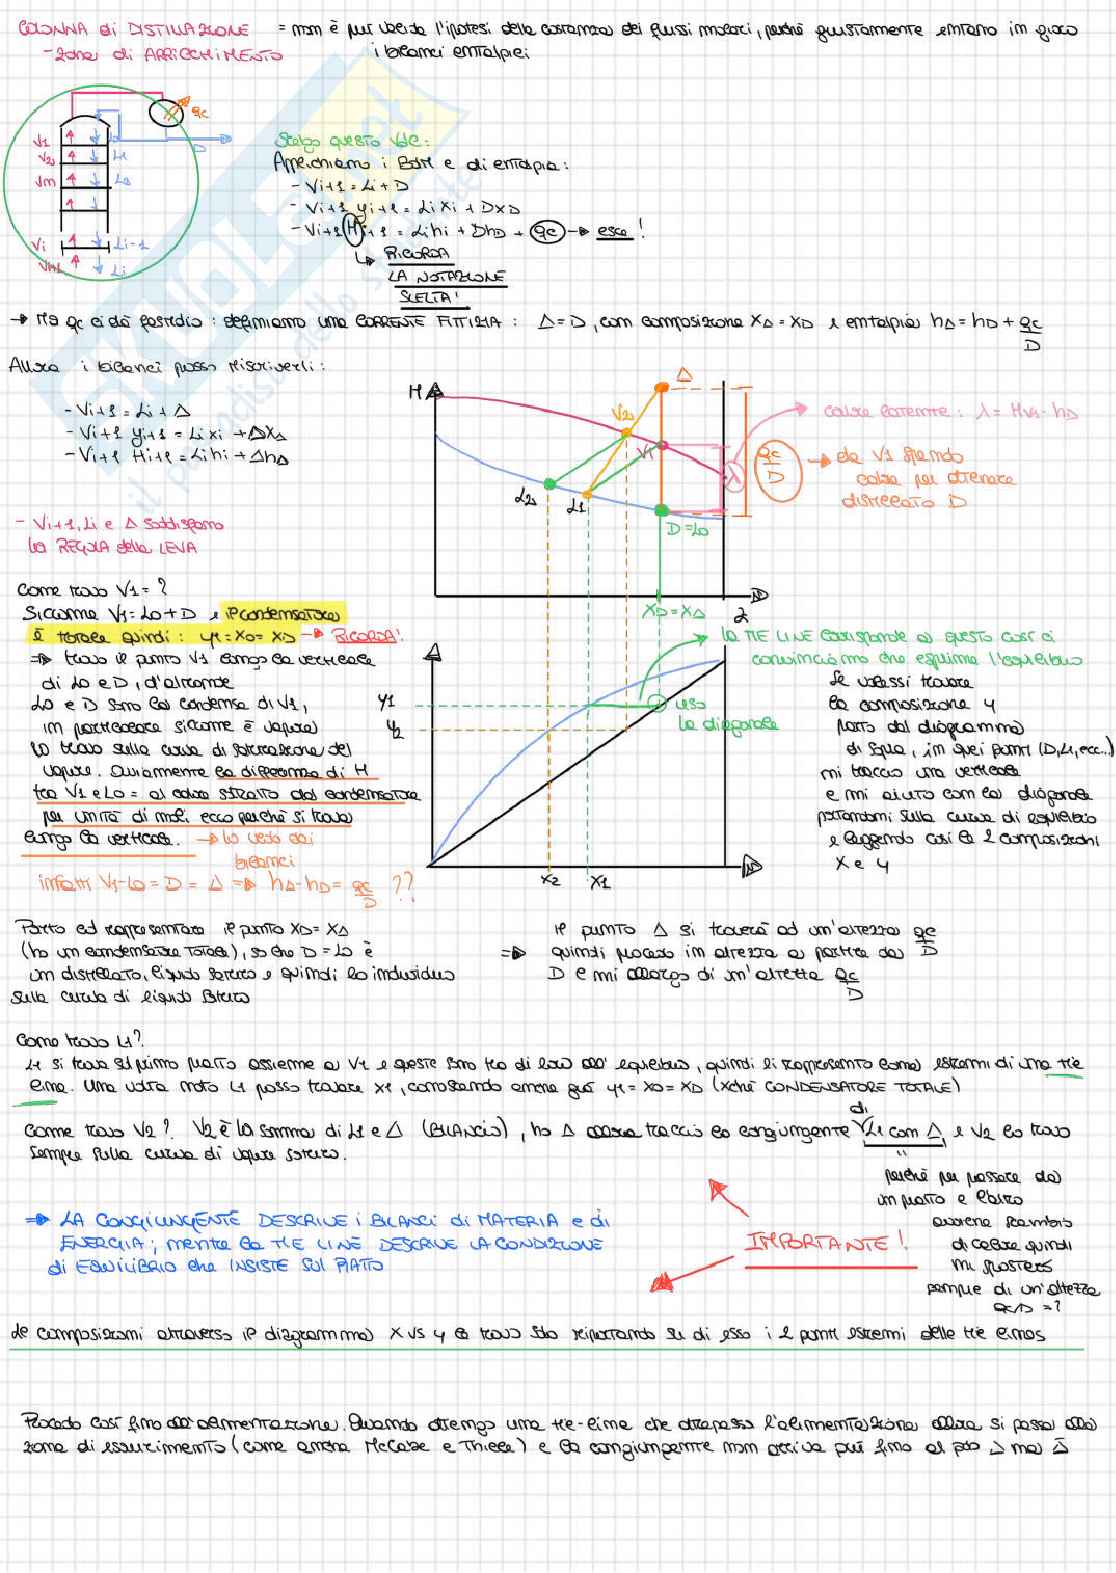 COLONNA di DISTILLAZIONE = non è più valida l'ipotesi della costanza dei flussi molari, perché giustamente entrano in gioco
- zona di ARRICCHIMENTO i bilanci entalpici
qc
D
V1
V2 L1
Vi Li-1
Vi+1 Li
Scelgo questo VdC:
Applichiamo i BdM e di entalpia:
- Vi+1 = Li + D
- Vi+1 yi+1 = Li xi + D xD
- Vi+1 Hi+1 = Li hi + D hD + qc → esce!
RICORDA
LA NOTAZIONE
SCELTA!
→ Ma qc ci dà fastidio: definiamo una CORRENTE FITTIZIA: Δ = D, con composizione xΔ = xD e entalpia hΔ = hD + qc/D
Allora i bilanci posso riscriverli:
- Vi+1 = Li + Δ
- Vi+1 yi+1 = Li xi + Δ xΔ
- Vi+1 Hi+1 = Li hi + Δ hΔ
- Vi+1, Li e Δ soddisfano
la REGOLA della LEVA
H
Δ
V2
V1
L2
L1
D = L0
λ
xD = xΔ
calore latente: λ = HV1 - hD
qc/D → da V1 spendo
calore per ottenere
distillato D
Come trovo V1 = ?
Siccome V1 = L0 + D e il condensatore
è totale quindi: y1 = x0 = xD → RICORDA!
⇒ trovo il punto V1 lungo la verticale
di L0 e D, d'altronde
L0 e D sono la condensa di V1,
in particolare siccome è vapore
lo trovo sulla curva di saturazione del
vapore. Ovviamente la differenza di H
tra V1 e L0 = al calore sottratto dal condensatore
per unità di moli ecco perché si trova
lungo la verticale. → lo vedo dai
bilanci
infatti V1 - L0 = D = Δ ⇒ hΔ - hD = qc/D ??
y1
y2
x2 x1
uso
la diagonale
la TIE LINE corrisponde a questo così ci
convinciamo che esprime l'equilibrio
Se volessi trovare
la composizione y
parto dal diagramma
di sopra, in quei punti (D, L1, ecc...)
mi traccio una verticale
e mi aiuto con la diagonale
portandomi sulla curva di equilibrio
e leggendo così le 2 composizioni
x e y
Parto col rappresentare il punto xD = xΔ
(ho un condensatore TOTALE), so che D = L0 è
un distillato, liquido saturo e quindi lo individuo
sulla curva di liquido saturo
⇒ il punto Δ si troverà ad un'altezza qc/D
quindi procedo in altezza a partire da
D e mi allargo di un'altezza qc/D
Come trovo L1?
L1 si trova sul primo piatto assieme a V1 e queste sono tra di loro all'equilibrio, quindi li rappresento come estremi di una tie
line. Una volta noto L1 posso trovare x1, conoscendo anche già y1 = x0 = xD (xché CONDENSATORE TOTALE)
Come trovo V2? V2 è la somma di L1 e Δ (BILANCIO), ho Δ allora traccio la congiungente di L1 con Δ, e V2 lo trovo
sempre sulla curva di vapore saturo.
perché per passare da
un piatto e l'altro
avviene scambio
di calore quindi
mi sposterò
sempre di un'altezza
qc/D = ?
⇒ LA CONGIUNGENTE DESCRIVE i BILANCI di MATERIA e di
ENERGIA; mentre la TIE LINE DESCRIVE LA CONDIZIONE
di EQUILIBRIO che INSISTE SUL PIATTO
IMPORTANTE!
Le composizioni attraverso il diagramma x vs y le trovo solo riportando su di esso i 2 punti estremi delle tie lines
Procedo così fino all'alimentazione. Quando ottengo una tie-line che oltrepassa l'alimentazione allora si passa alla
zona di esaurimento (come anche McCabe e Thiele) e la congiungente non arriva più fino al polo Δ ma